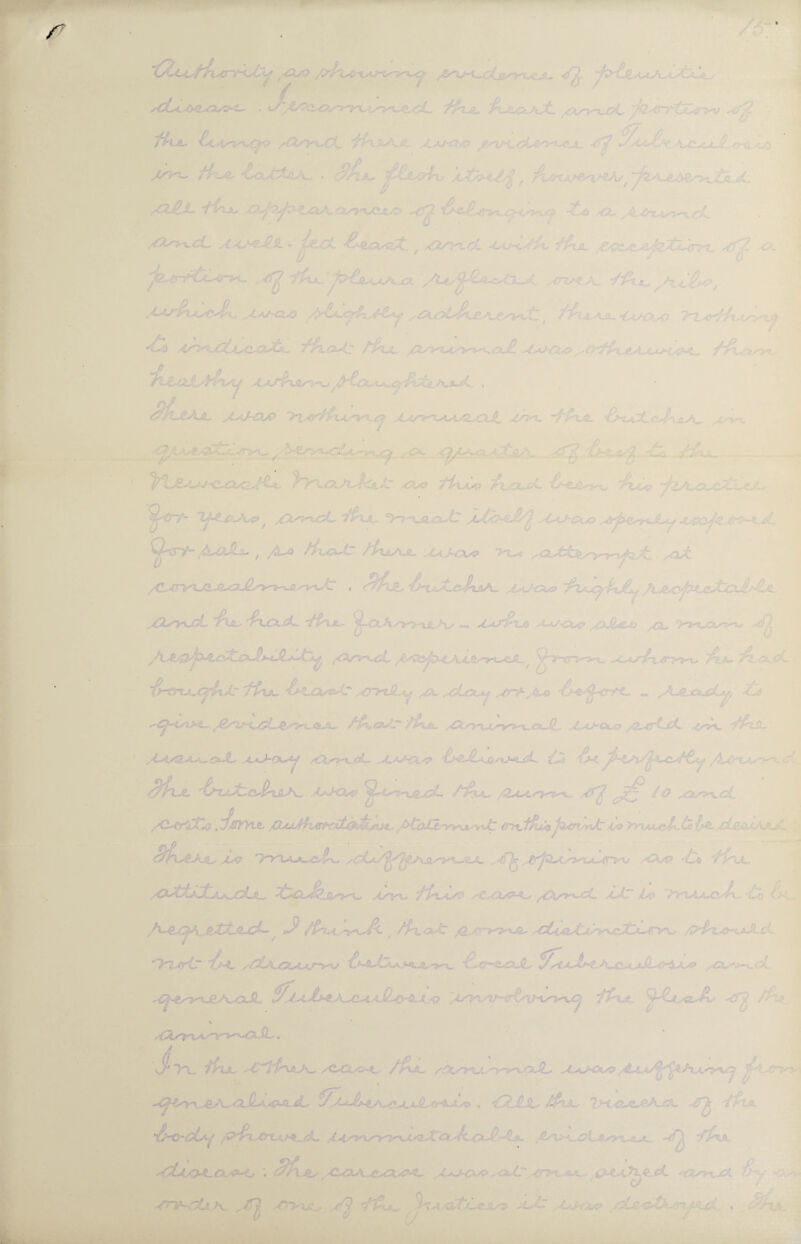 15.
Authority as showing evidence of pleuritic
disease. I examined the heart and portion of
the lungs and there was evidence of Tuberculosis
in the latter. The flesh itself, however, presented
all the appearances of belonging to a sound
and well-fed beast, and with the exception of a
portion of the pleura reflected over the ribs,
which was slightly adherent, there was nothing
to indicate that the animal was otherwise than
healthy when slaughtered.
There was nothing unusual in the butcher in
question sending a quarter of beef to the
Newcastle Market as this had been his practice
for years, and the meat itself was openly exposed
for sale, so that there was no attempt at
concealment. The butcher was highly respectable
and he had the farmer - who was also a man of
respectability and experience, from whom he had
bought the beast only a day or so before - ready to
give evidence that the animal was sold in the
usual way and was believed to be perfectly sound.
The butcher was fined the sum of £10 and
costs. Some authoritative statement on this point is much to be desired.
There is much difference of opinion as to the
attitude taken in this case, and it is much to be
regretted, I think, that some distinction should
not be drawn between local Tuberculosis and
general Tuberculosis involving the flesh of the
animal.
In the other case the animal was suffering from
generalised Tuberculosis. All the viscera of the
body showed unmistakable evidence of the
disease. The carcase was at once seized and by an
order of one of the Justices it was destroyed. The